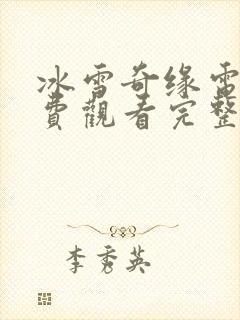 冰雪奇缘電
費觀看完整
李秀英